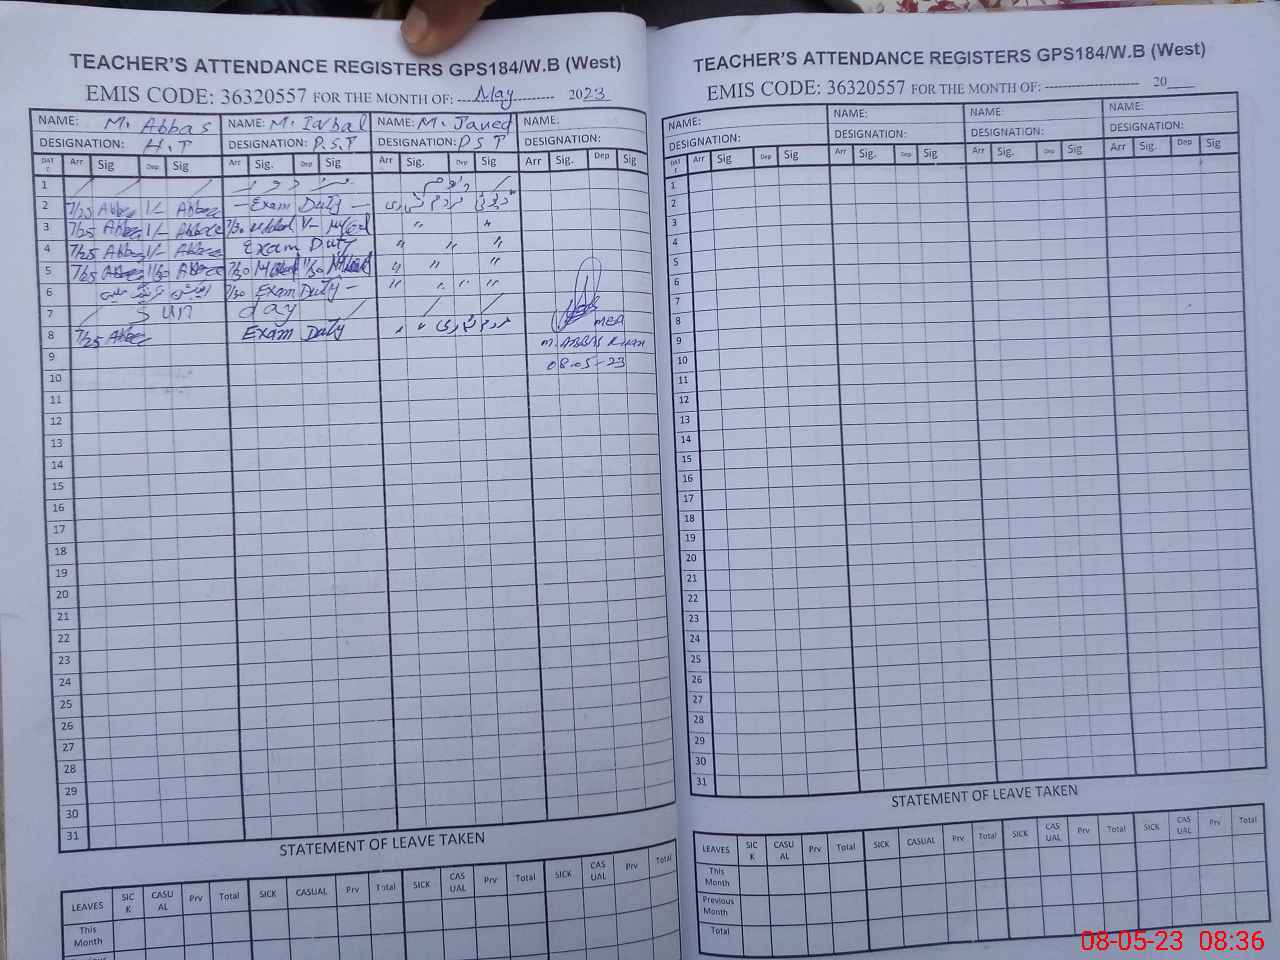 TEACHER'S ATTENDANCE REGISTERS GPS184/W.B (West)
EMIS CODE: 36320557 FOR THE MONTH OF: May 2023
NAME: M. Abbas NAME: M. Iqbal NAME: M. Javed NAME:
DESIGNATION: H.T DESIGNATION: P.S.T DESIGNATION: P S T DESIGNATION:
DATE Arr Sig Dep Sig Arr Sig. Dep Sig Arr Sig. Dep Sig Arr Sig. Dep Sig
1
2 7/25 Abbas 1/- Abbas - Exam Duty -
3 7/25 Abbas 1/- Abbas 7/30 1/- "
4 7/25 Abbas 1/- Abbas Exam Duty " " "
5 7/25 Abbas 1/30 Abbas 7/30 1/30 " " "
6 7/30 Exam Duty - " " " "
7 Sun day
8 7/25 Abbas Exam Duty
MEA
9 M. ABBAS KHAN
10 08-05-23
11
12
13
14
15
16
17
18
19
20
21
22
23
24
25
26
27
28
29
30
31
STATEMENT OF LEAVE TAKEN
LEAVES SICK CASUAL Prv Total SICK CASUAL Prv Total SICK CASUAL Prv Total SICK CASUAL Prv Total
This Month
TEACHER'S ATTENDANCE REGISTERS GPS184/W.B (West)
EMIS CODE: 36320557 FOR THE MONTH OF: ------------------------ 20____
NAME: NAME: NAME: NAME:
DESIGNATION: DESIGNATION: DESIGNATION: DESIGNATION:
DATE Arr Sig Dep Sig Arr Sig. Dep Sig Arr Sig. Dep Sig Arr Sig. Dep Sig
1
2
3
4
5
6
7
8
9
10
11
12
13
14
15
16
17
18
19
20
21
22
23
24
25
26
27
28
29
30
31
STATEMENT OF LEAVE TAKEN
LEAVES SICK CASUAL Prv Total SICK CASUAL Prv Total SICK CASUAL Prv Total SICK CASUAL Prv Total
This Month
Previous Month
Total
08-05-23 08:36